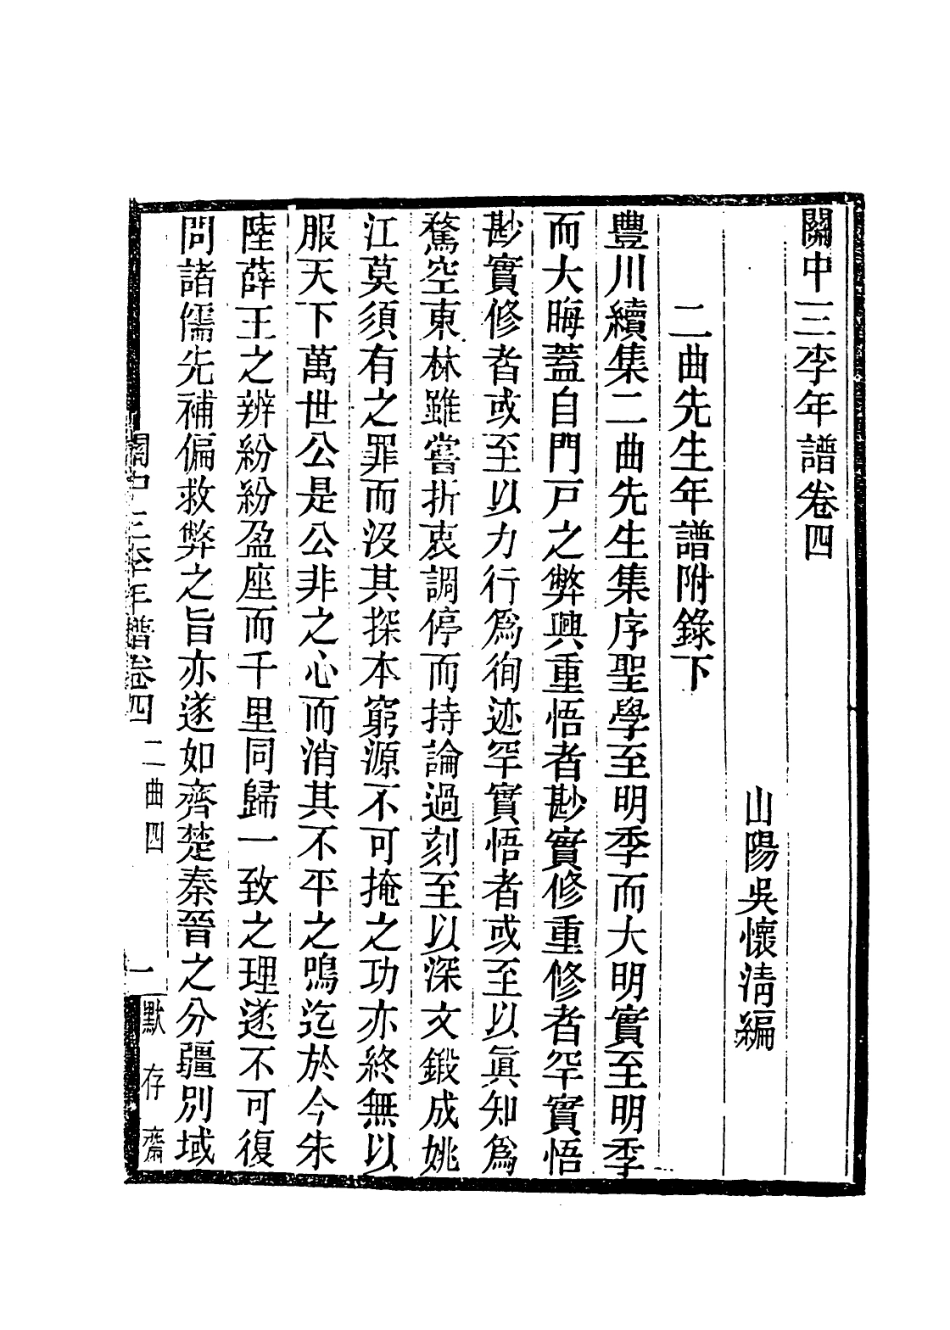 關中三李年譜卷四
山陽吳懷清編
二曲先生年譜附錄下
豐川續集二曲先生集序聖學至明季而大明實至明季
而大晦蓋自門戸之弊興重悟者尠實修重修者罕實悟
尠實修者或至以力行爲徇迹罕實悟者或至以眞知爲
騖空東林雖嘗折衷調停而持論過刻至以深文鍛成姚
江莫須有之罪而沒其探本窮源不可掩之功亦終無以
服天下萬世公是公非之心而消其不平之鳴迄於今朱
陸薛王之辨紛紛盈座而千里同歸一致之理遂不可復
問諸儒先補偏救弊之旨亦遂如齊楚秦晉之分疆別域
關中三李年譜卷四 二曲四 一 默存齋